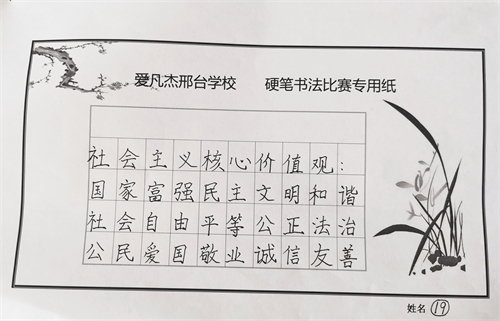 爱凡杰邢台学校 硬笔书法比赛专用纸
社会主义核心价值观：
国家富强民主文明和谐
社会自由平等公正法治
公民爱国敬业诚信友善
姓名 19